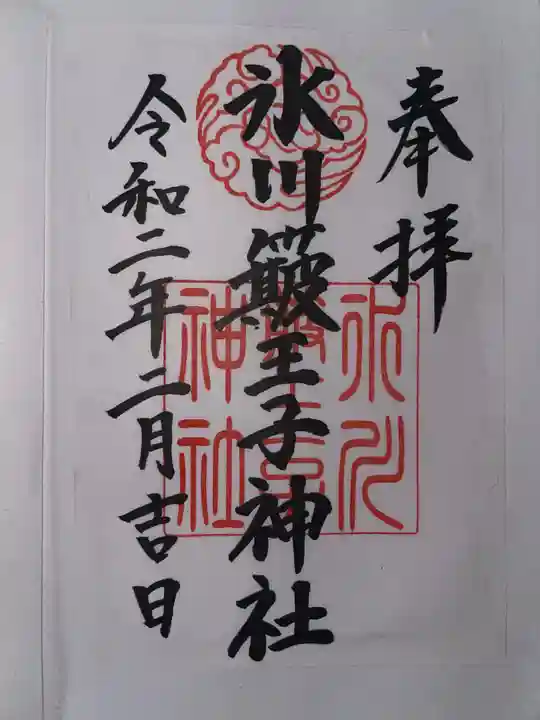 奉拝
氷川簸王子神社
令和二年二月吉日
氷川
簸王子
神社